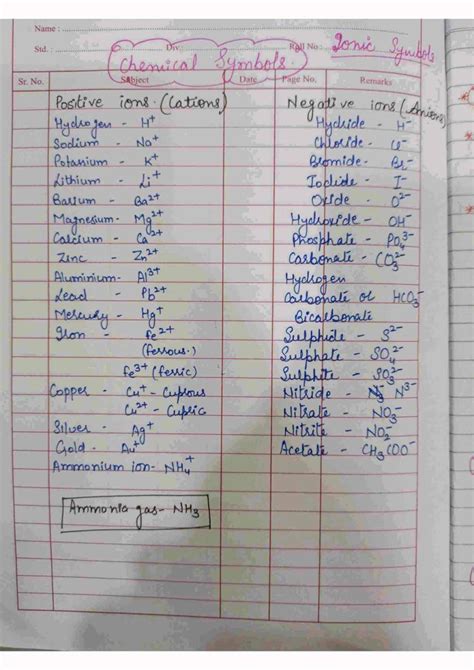 Name :
Std. : Div. Roll No. : Ionic Symbols
Chemical Symbols.
Sr. No. Subject Date Page No. Remarks
Positive ions. (Cations)
Hydrogen - H⁺
Sodium - Na⁺
Potasium - K⁺
Lithium - Li⁺
Barium - Ba²⁺
Magnesium - Mg²⁺
Calcium - Ca²⁺
Zinc - Zn²⁺
Aluminium - Al³⁺
Lead - Pb²⁺
Mercury - Hg⁺
Iron - Fe²⁺
(ferrous.)
Fe³⁺ (ferric)
Copper - Cu⁺ - Cuprous
Cu²⁺ - Cupric
Silver - Ag⁺
Gold - Au⁺
Ammonium ion - NH₄⁺
Ammonia gas - NH₃
Negative ions (Anions)
Hydride - H⁻
Chloride - Cl⁻
Bromide - Br⁻
Iodide - I⁻
Oxide - O²⁻
Hydroxide - OH⁻
Phosphate - PO₄³⁻
Carbonate - CO₃²⁻
Hydrogen
Carbonate or HCO₃⁻
Bicarbonate
Sulphide - S²⁻
Sulphate - SO₄²⁻
Sulphite - SO₃²⁻
Nitride - N³⁻
Nitrate - NO₃⁻
Nitrite - NO₂⁻
Acetate - CH₃COO⁻